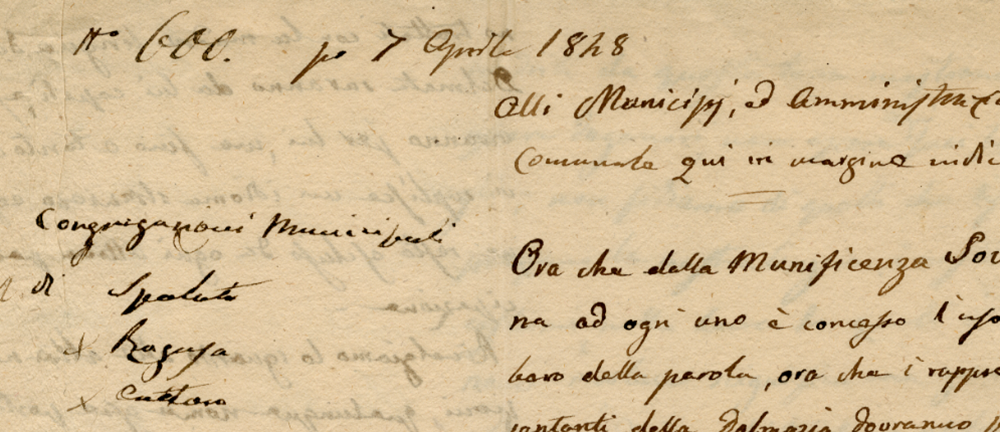 No 600. po 7 Aprile 1848
Alli Municipj, ed Amministraz
Comunale qui in margine indic
Congregazioni Municipali
di
Spalato
x Ragusa
x Cattaro
Ora che dalla Munificenza Sov
na ad ogni uno è concesso l'uso
bero della parola, ora che i rappre
sentanti della Dalmazia dovranno